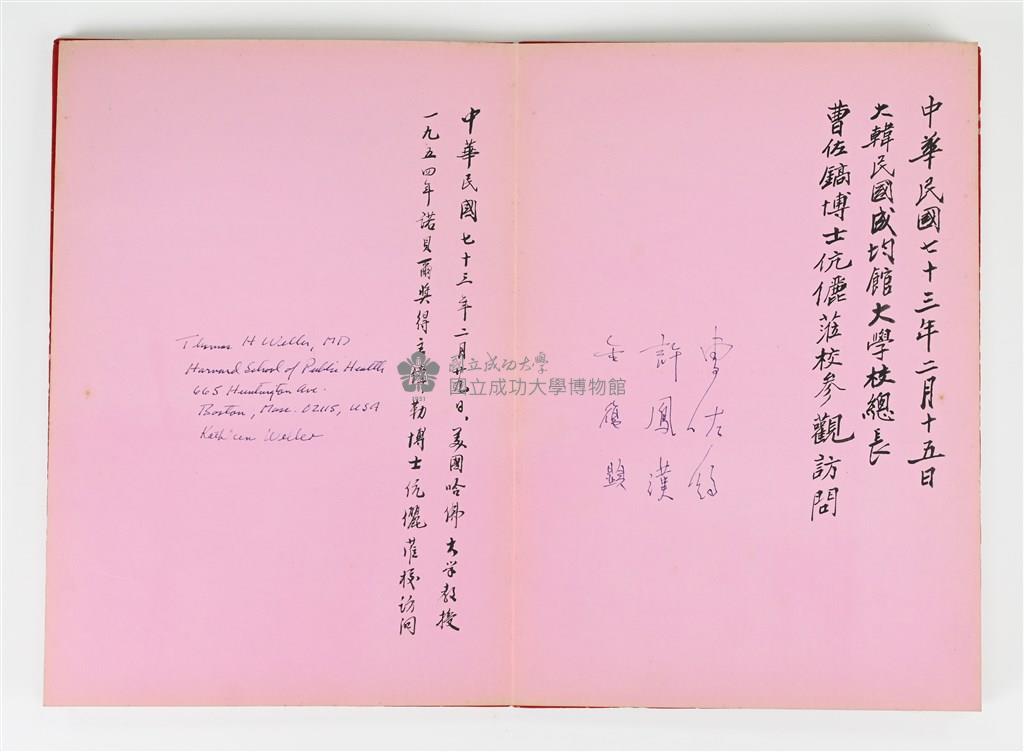 中華民國七十三年二月十五日
大韓民國成均館大學校總長
曹佐鎬博士伉儷蒞校參觀訪問
曹佐鎬
許鳳漢
金應顯
中華民國七十三年二月廿九日。美國哈佛大学教授
一九五四年諾貝爾奬得主勒博士伉儷蒞校访问
Thomas H Weller, MD
Harvard School of Public Health
665 Huntington Ave.
Boston, Mass. 02115, USA
Kathleen Weller
國立成功大學
國立成功大學博物館